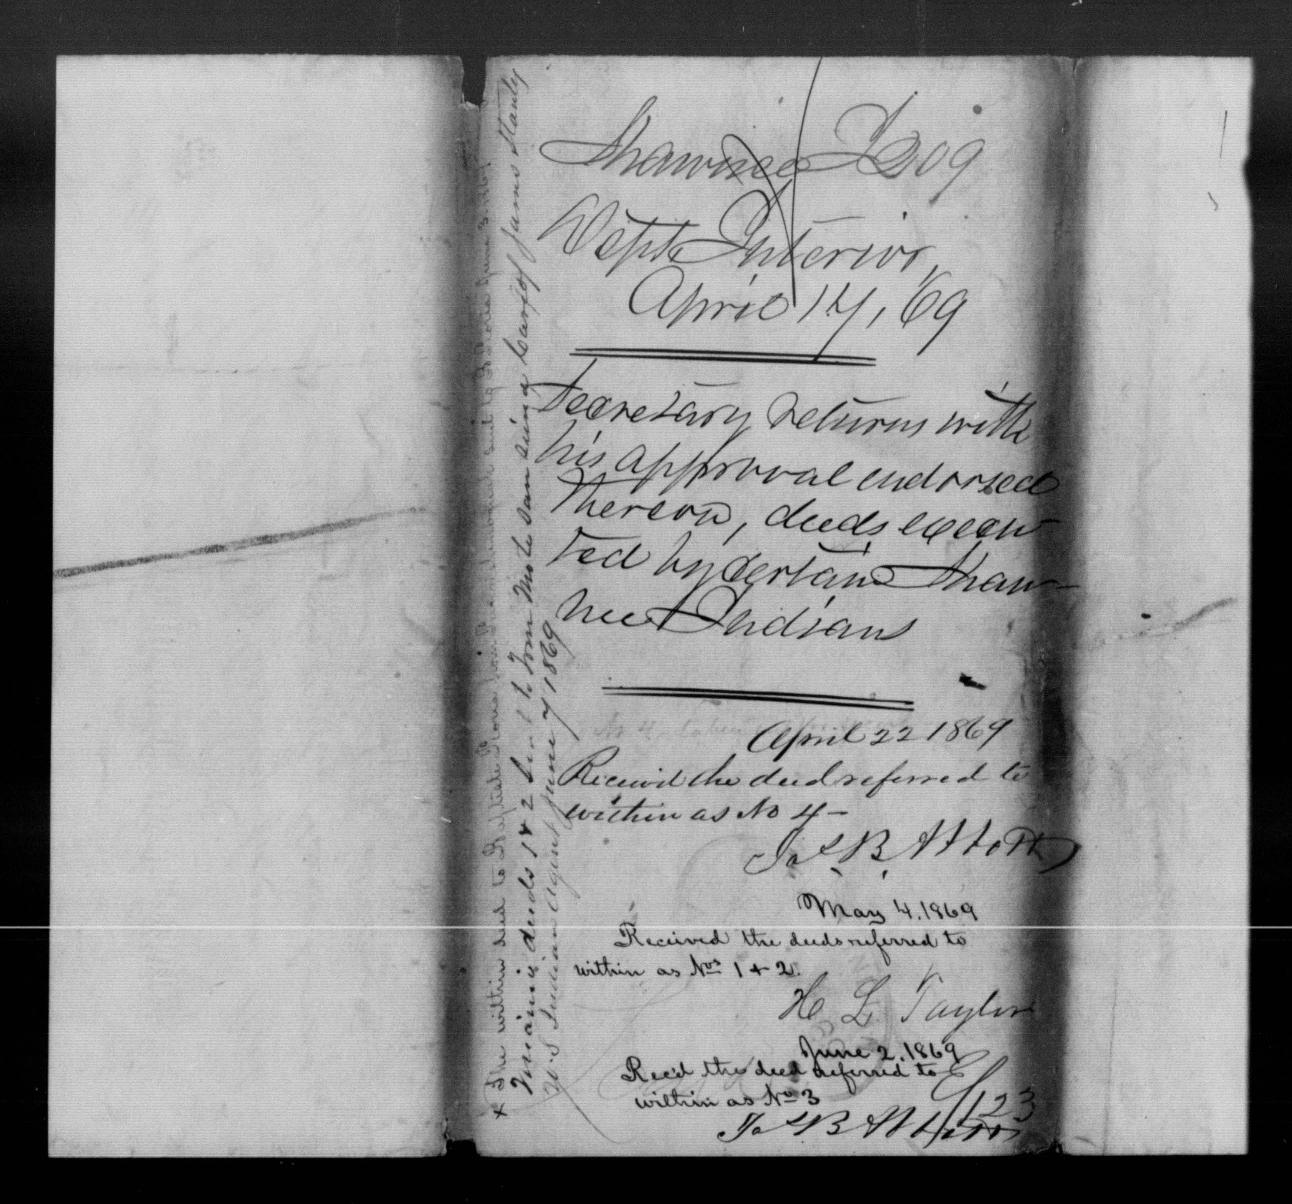 Shawnee I 309
Dept Interior,
April 17, 69
Secretary returns with
his approval endorsed
thereon, deeds execu-
ted by certain Shaw-
nee Indians
April 22 1869
Received the deed referred to
within as No 4 -
Jas B Abbott
May 4, 1869
Received the deeds referred to
within as Nos 1 + 2.
H L Taylor
June 2, 1869
Rec'd the deed referred to
within as No 3
Jas B Abbott
123
x The within deed to
Miami deeds 1 & 2 sent to James Stanley
U.S. Indian Agent June 7 1869